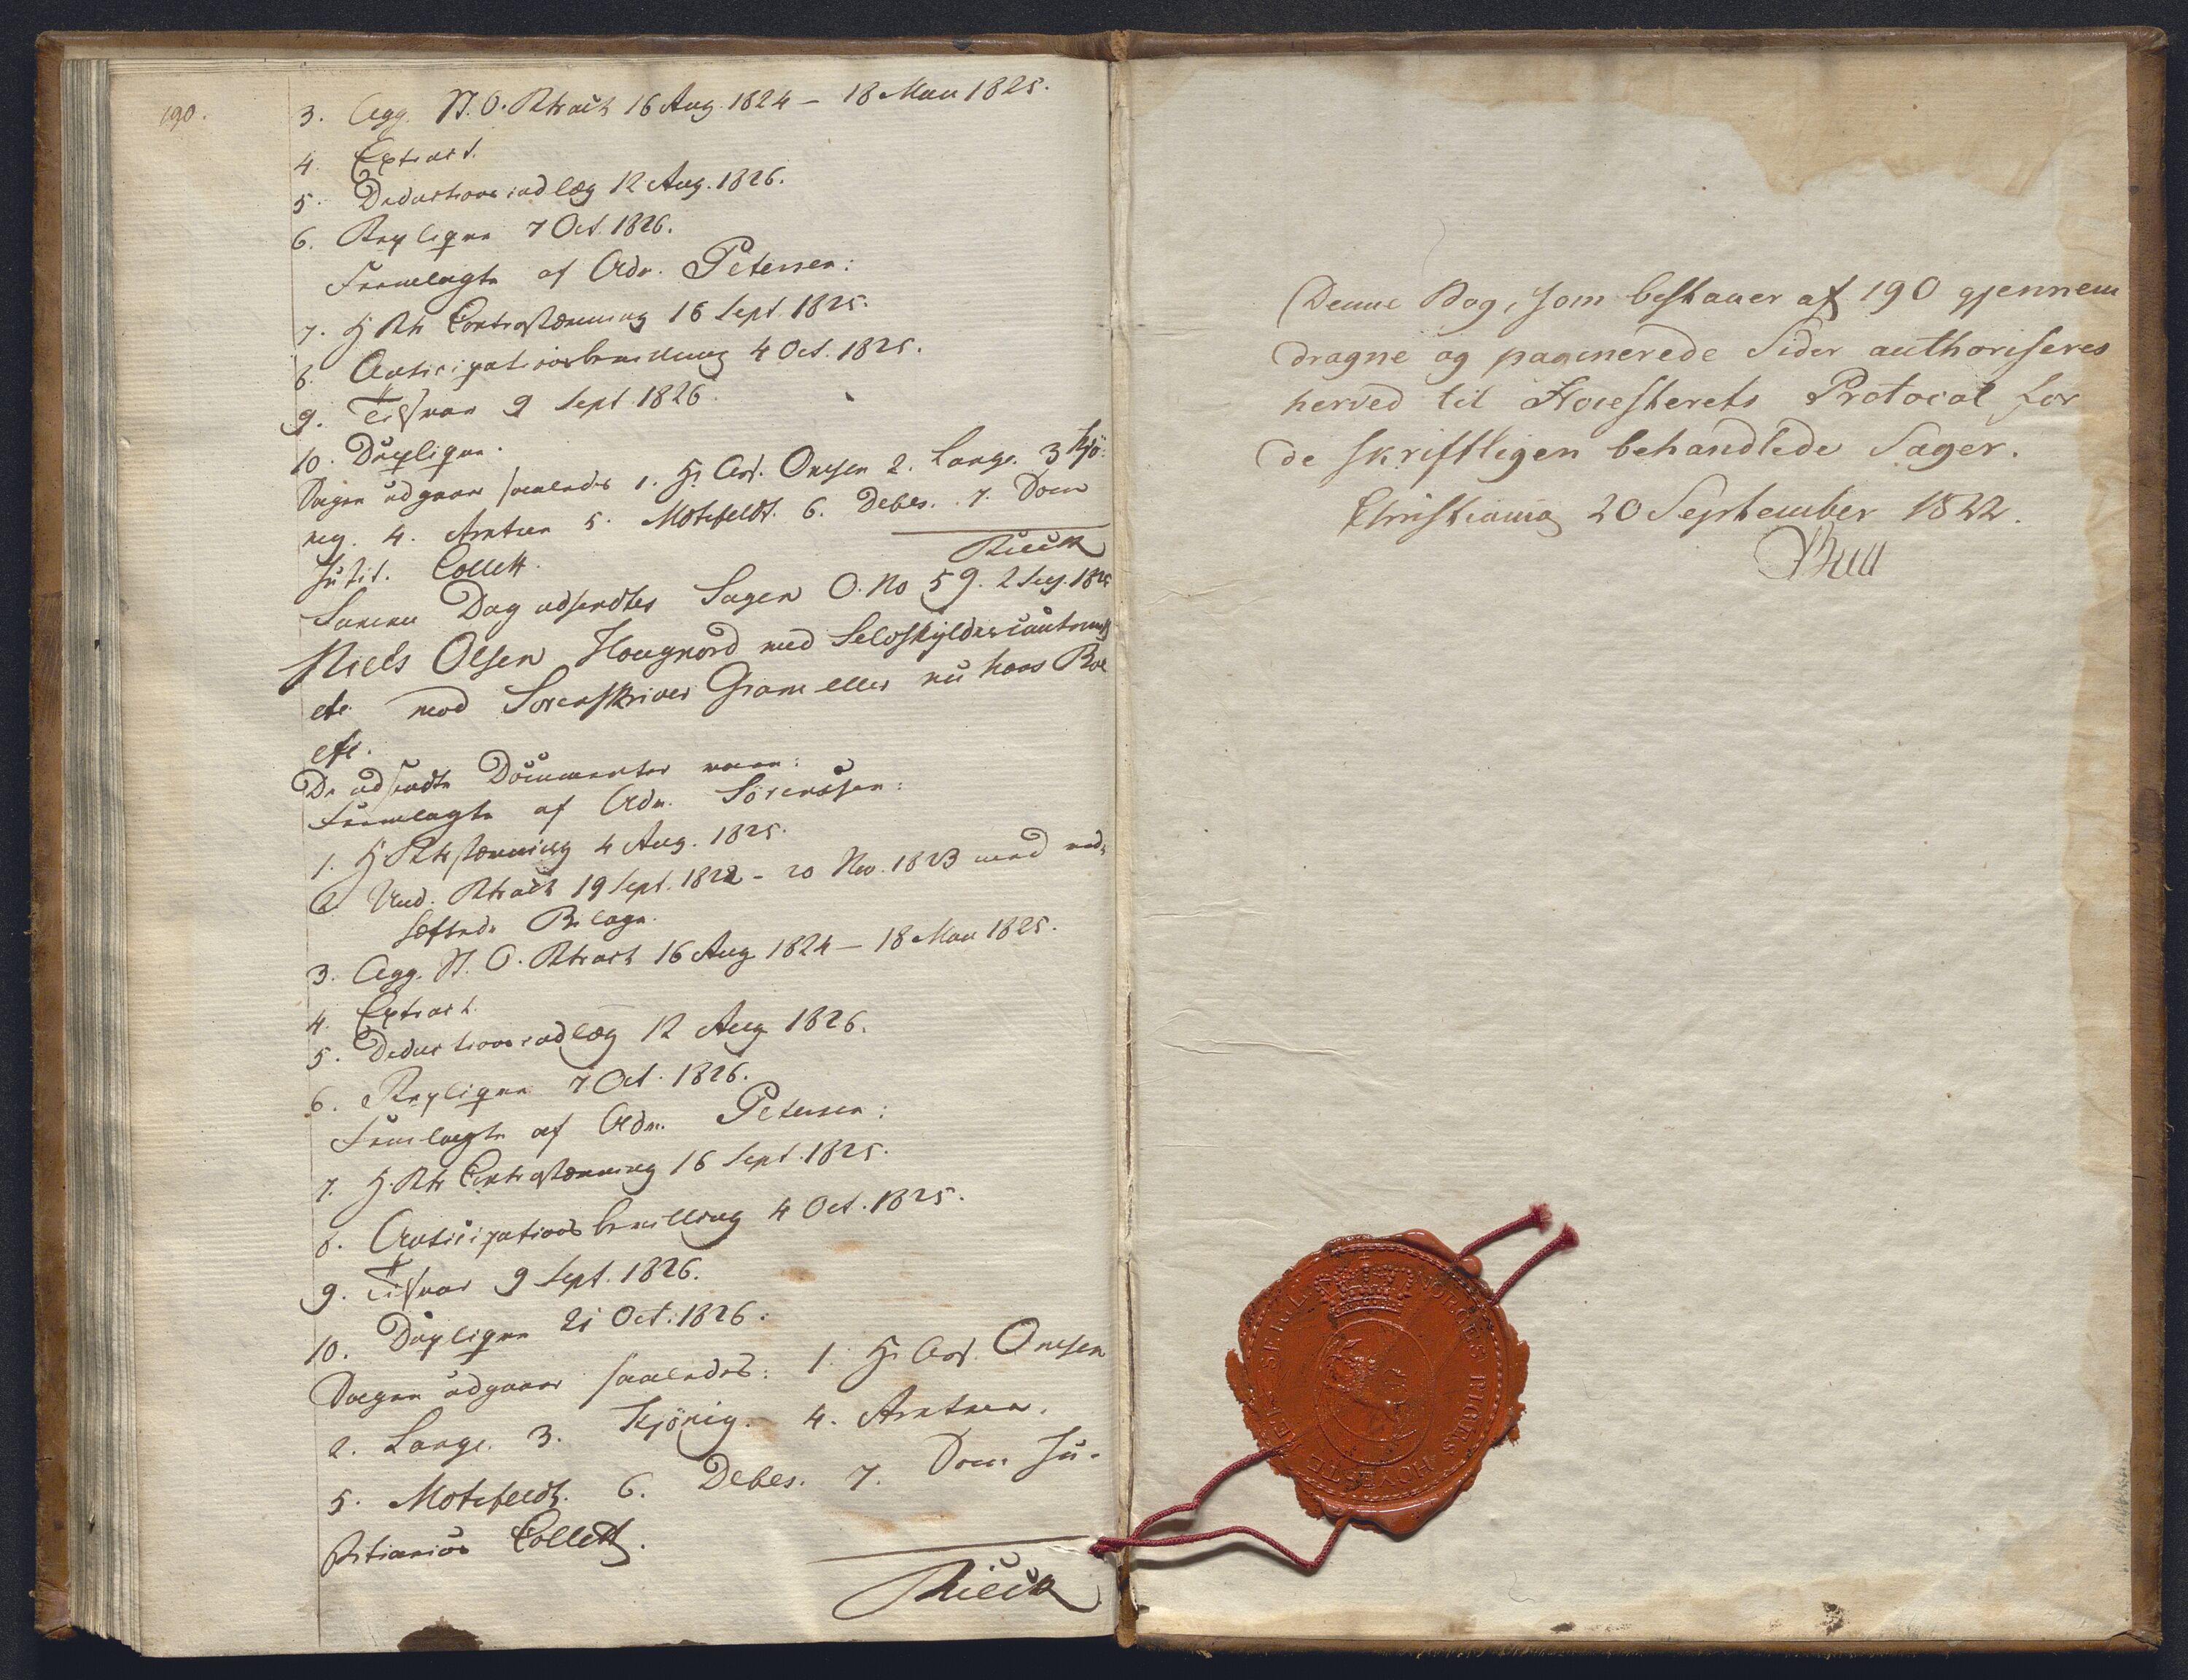 190.
3. Agg. St. O. Rtsact 16 Aug. 1824 – 18 Mai 1825.
4. Extract.
5. Deductionsindlæg 12 Aug. 1826.
6. Repliqve 7 Oct. 1826.
Fremlagte af Adv. Petersen:
7. H Rts Contrastævning 16 Sept. 1825.
8. Anticipationsbevilling 4 Oct. 1825.
9. Tilsvar 9 Sept 1826.
10. Dupliqve.
Sagen udgaaer saaledes 1. Hr Ass. Omsen 2. Lange. 3 Kjö-
nig. 4. Arntzen 5. Motzfeldt. 6. Debes. 7. Dom
Justit. Collett.
Rieck
Samme Dag udsendtes Sagen O. No 59. 2 Sep. 1825
Niels Olsen Hougnord med Selvskyldnercautionist
etc. mod Sorenskriver Gram eller nu hans Boe
etc.
De udsendte Documenter vare:
Fremlagte af Adv. Sörenssen:
1. H Rtsstævning 4 Aug. 1825.
2. Und. Rtsact 19 Sept. 1822 – 20 Nov. 1823 med ved-
hæftede Bilage.
3. Agg. St. O. Rtsact 16 Aug 1824 – 18 Mai 1825.
4. Extract.
5. Deductionsindlæg 12 Aug 1826.
6. Repliqve 7 Oct. 1826.
Fremlagte af Adv. Petersen:
7. H. Rts Contrastævning 16 Sept. 1825.
8. Anticipationsbevilling 4 Oct. 1825.
9. Tilsvar 9 Sept. 1826.
10. Dupliqve 21 Oct. 1826.
Sagen udgaaer saaledes: 1. Hr Ass. Omsen
2. Lange. 3. Kjönig. 4. Arntzen.
5. Motzfeldt. 6. Debes. 7. Dom Ju-
stitiarius Collett.
Rieck
Denne Bog, som bestaaer af 190 gjennem
dragne og paginerede Sider authoriseres
herved til Hoiesterets Protocol for
de skriftligen behandlede Sager.
Christiania 20 September 1822.
Bull
NORGES RIGES HOYESTE RETS SEGIL